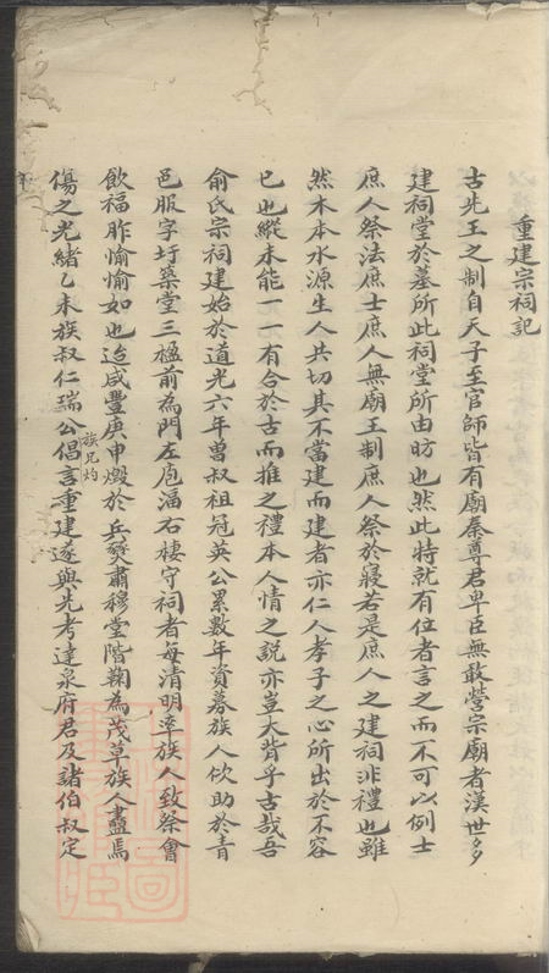 重建宗祠記
古先王之制自天子至官師皆有廟秦尊君卑臣無敢營宗廟者漢世多
建祠堂於墓所此祠堂所由昉也然此特就有位者言之而不可以例士
庶人祭法庶士庶人無廟王制庶人祭於寢若是庶人之建祠非禮也雖
然木本水源生人共切其不當建而建者亦仁人孝子之心所出於不容
已也縱未能一一有合於古而推之禮本人情之説亦豈大背乎古哉吾
俞氏宗祠建始於道光六年曽叔祖冠英公累數年資募族人佽助於青
邑服字圩築堂三楹前為門左庖湢右棲守祠者每清明率族人致祭會
飲福胙愉愉如也迨咸豐庚申燬於兵燹肅穆堂階鞠為茂草族人盡焉
傷之光緒乙未族叔仁瑞公族兄灼倡言重建遂與先考達泉府君及諸伯叔定